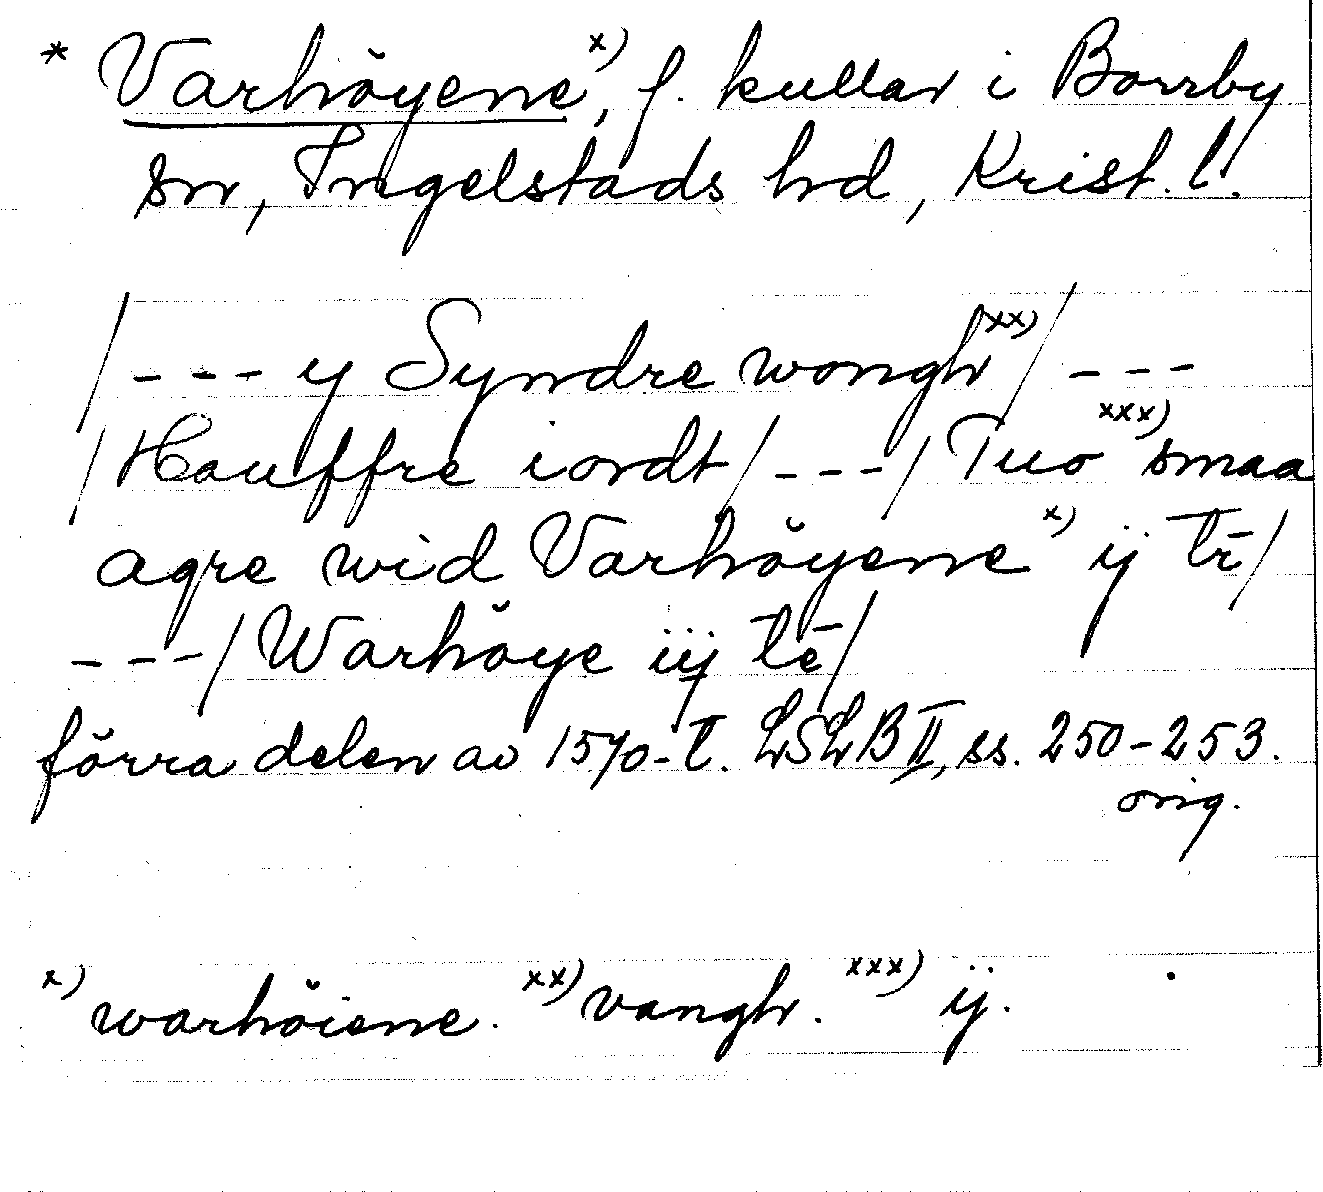 * Varhöyene x), f. kullar i Borrby
sn, Ingelstads hrd, Krist. l.
/--- y Syndre wongh xx)/ ---
/Hauffre iordt/---/Tuo xxx) smaa
agre wid Varhöyene x) ij tr̄/
---/Warhöye iij tē/
förra delen av 1570-t. LSLB II, ss. 250-253.
orig.
x) warhöiene. xx) vangh. xxx) ij.